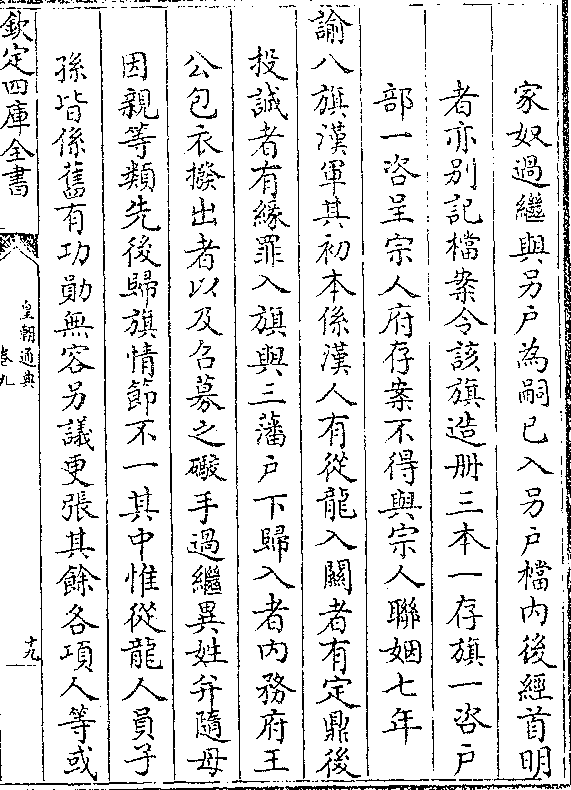 家奴過繼與另户為嗣已入另户檔内後經首明
者亦别記檔案令該旗造册三本一存旗一咨户
部一咨呈宗人府存案不得與宗人聯姻七年
諭八旗漢軍其初本係漢人有從龍入關者有定鼎後
投誠者有緣罪入旗與三藩户下歸入者内務府王
公包衣撥出者以及召募之礮手過繼異姓并隨母
因親等類先後歸旗情節不一其中惟從龍人員子
孫皆係舊有功勛無容另議更張其餘各項人等或
欽定四庫全書
皇朝通典
卷九
十九